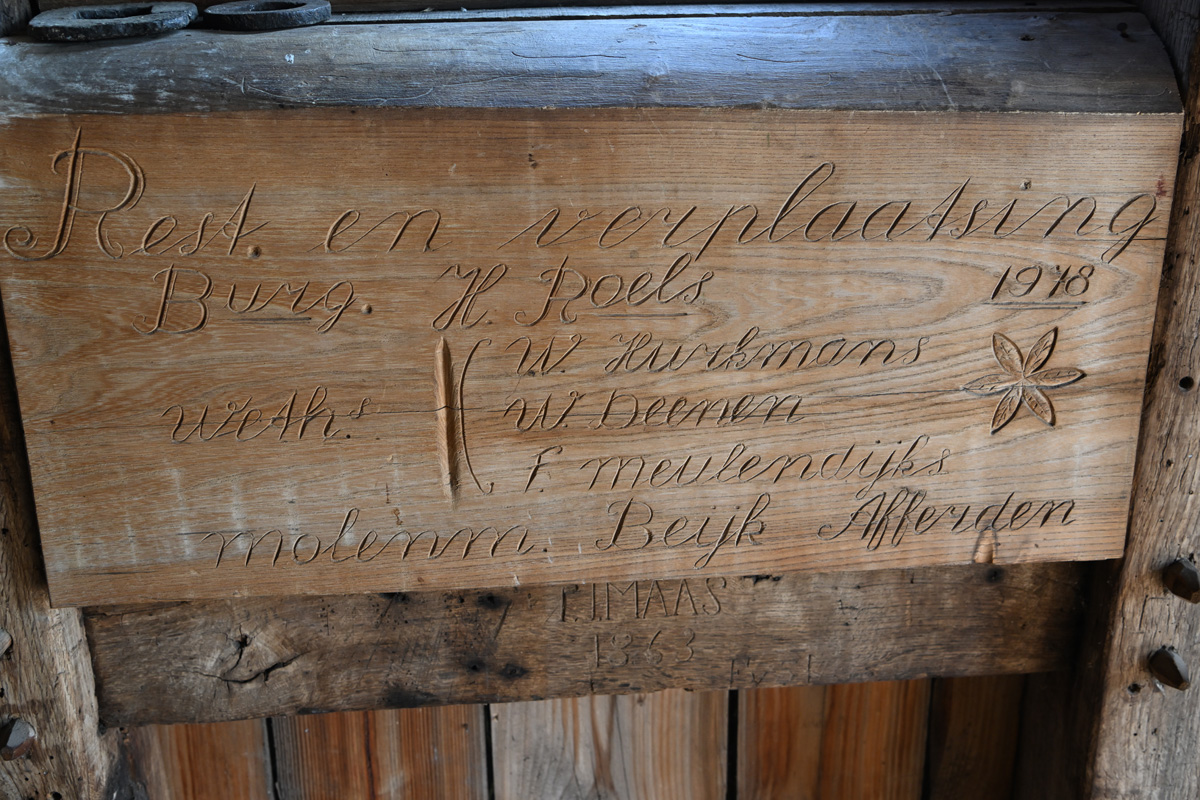 Rest. en verplaatsing
Burg. H. Roels 1978
Weth.s W. Hurkmans
W. Deenen
F. Meulendijks
molenm. Beijk Afferden
MAAS
1863